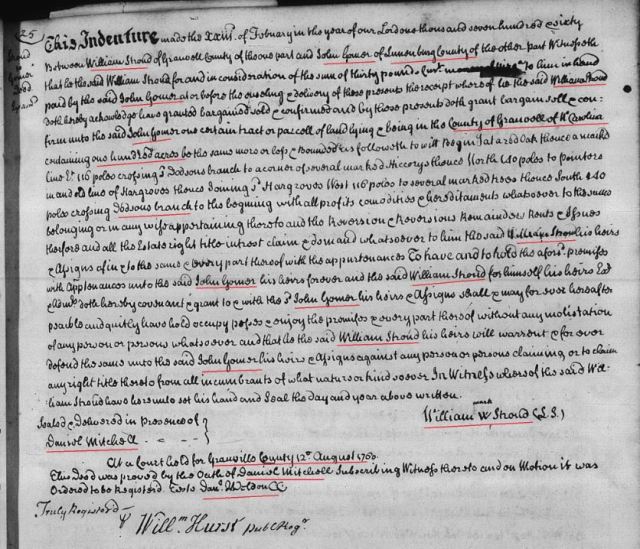 25
Stroud
Gomer
Deed
This Indenture made the XXIII. of February in the year of our Lord one thousand and seven hundred & sixty
Between William Stroud of Granvell County of the one part and John Gomer of Lunenburg County of the other part Witnesseth
that he the said William Stroud for and in consideration of the sum of thirty pounds to him in hand
paid by the said John Gomer at or before the ensealing & delivery of these presents the receipt whereof he the said William Stroud
doth hereby acknowledge have granted bargained sold & confirmed and by those presents doth grant bargain sell & con-
firm unto the said John Gomer one certain tract or parcell of land lying & being in the County of Granvell of N. Carolina
containing one hundred acres be the same more or less & Bounded as followeth to wit Begin at a red Oak thence a marked
line Et. 116 poles crossing sd. Dodsons branch to a corner of several marked Hiccorys thence North 140 poles to pointers
in and old line of Hargroves thence Joining sd. Hargroves West 116 poles to several marked trees thence South 140
poles crossing Dodsons branch to the begining with all profits comodities & hereditaments whatsoever to the same
belonging or in any wise appertaining thereto and the Reversion & Reversions Remainders Rents & Issues
thereof and all the Estate right title intrest claim & demand whatsoever to him the said William Stroud his heirs
& Assigns of in & to the same & every part thereof with the appurtenances To have and to hold the aforsd. promises
with Apptenances unto the said John Gomer his heirs forever and the said William Stroud for himself his heirs Exd
& Adms. doth hereby covenant & grant to & with the sd. John Gomer his heirs & Assigns shall & may for ever hereafter
peacable and quitly have hold occupy posses & enjoy the promises & every part thereof without any molistation
of any person or persons whatsoever and that he the said William Stroud his heirs will warrent & for ever
defend the same unto the said John Gomer his heirs & Assigns against any person or persons claiming or to claim
any right title thereto from all incumbrants of what nature or kind soever In Witness whereof the said Wil-
liam Stroud have hereunto set his hand and Seal the day and year above written.
mark
William W Stroud (L.S.)
Sealed & Delivered in Presence of
Daniel Mitchell
At a Court held for Granville County 12th. August 1760.
This Deed was proved by the Oath of Daniel Mitchell Subscribing Witness thereto and on Motion it was
Ordered to be Registered. Test Danl. Weldon CC
Truly Registered
P Willm. Hurst Pub. Regr.